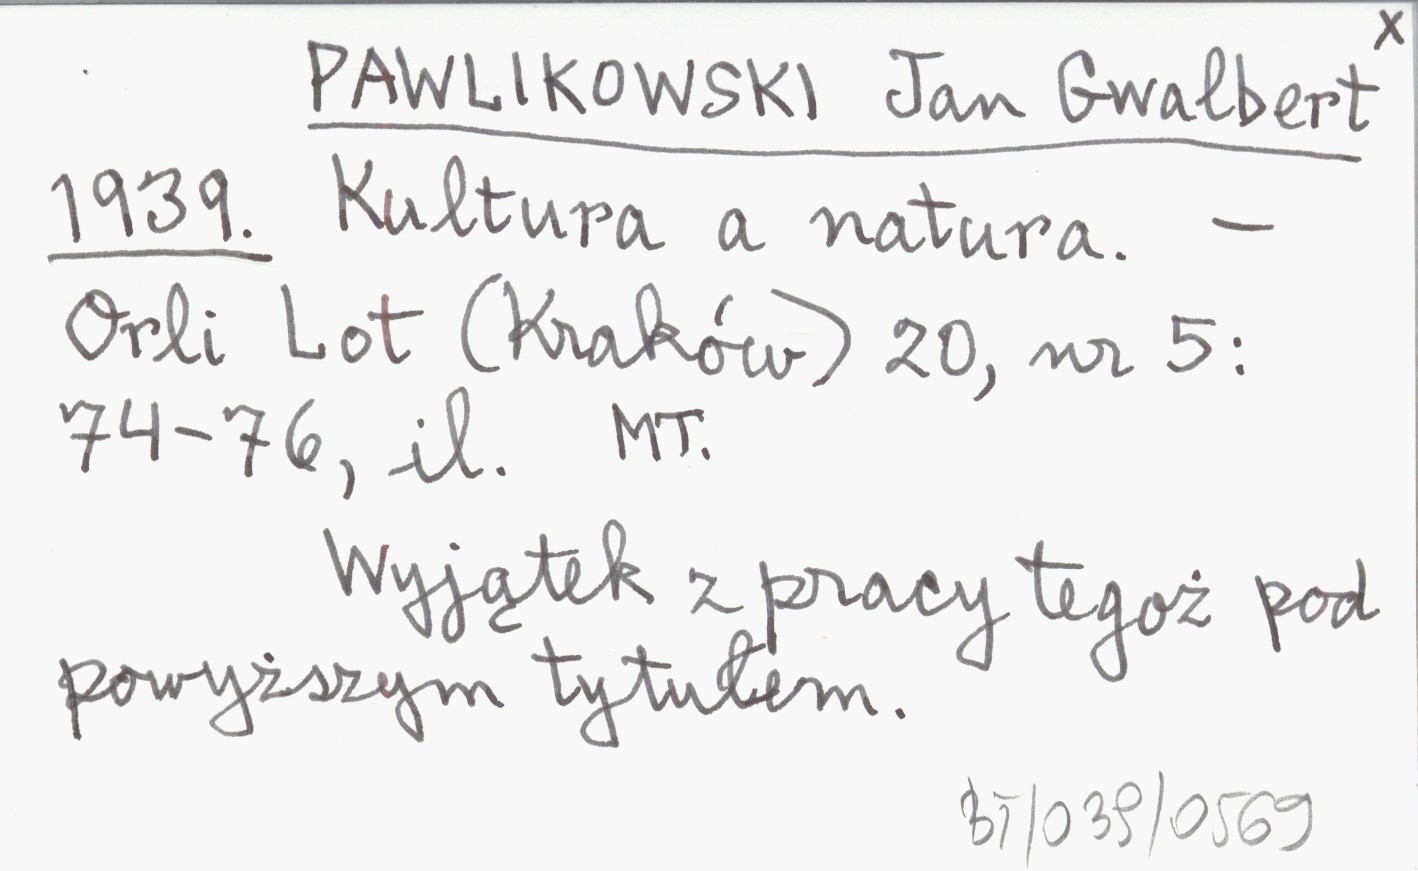 x
PAWLIKOWSKI Jan Gwalbert
1939. Kultura a natura. –
Orli Lot (Kraków) 20, nr 5:
74–76, il. MT.
Wyjątek z pracy tegoż pod
powyższym tytułem.
BT/039/0569